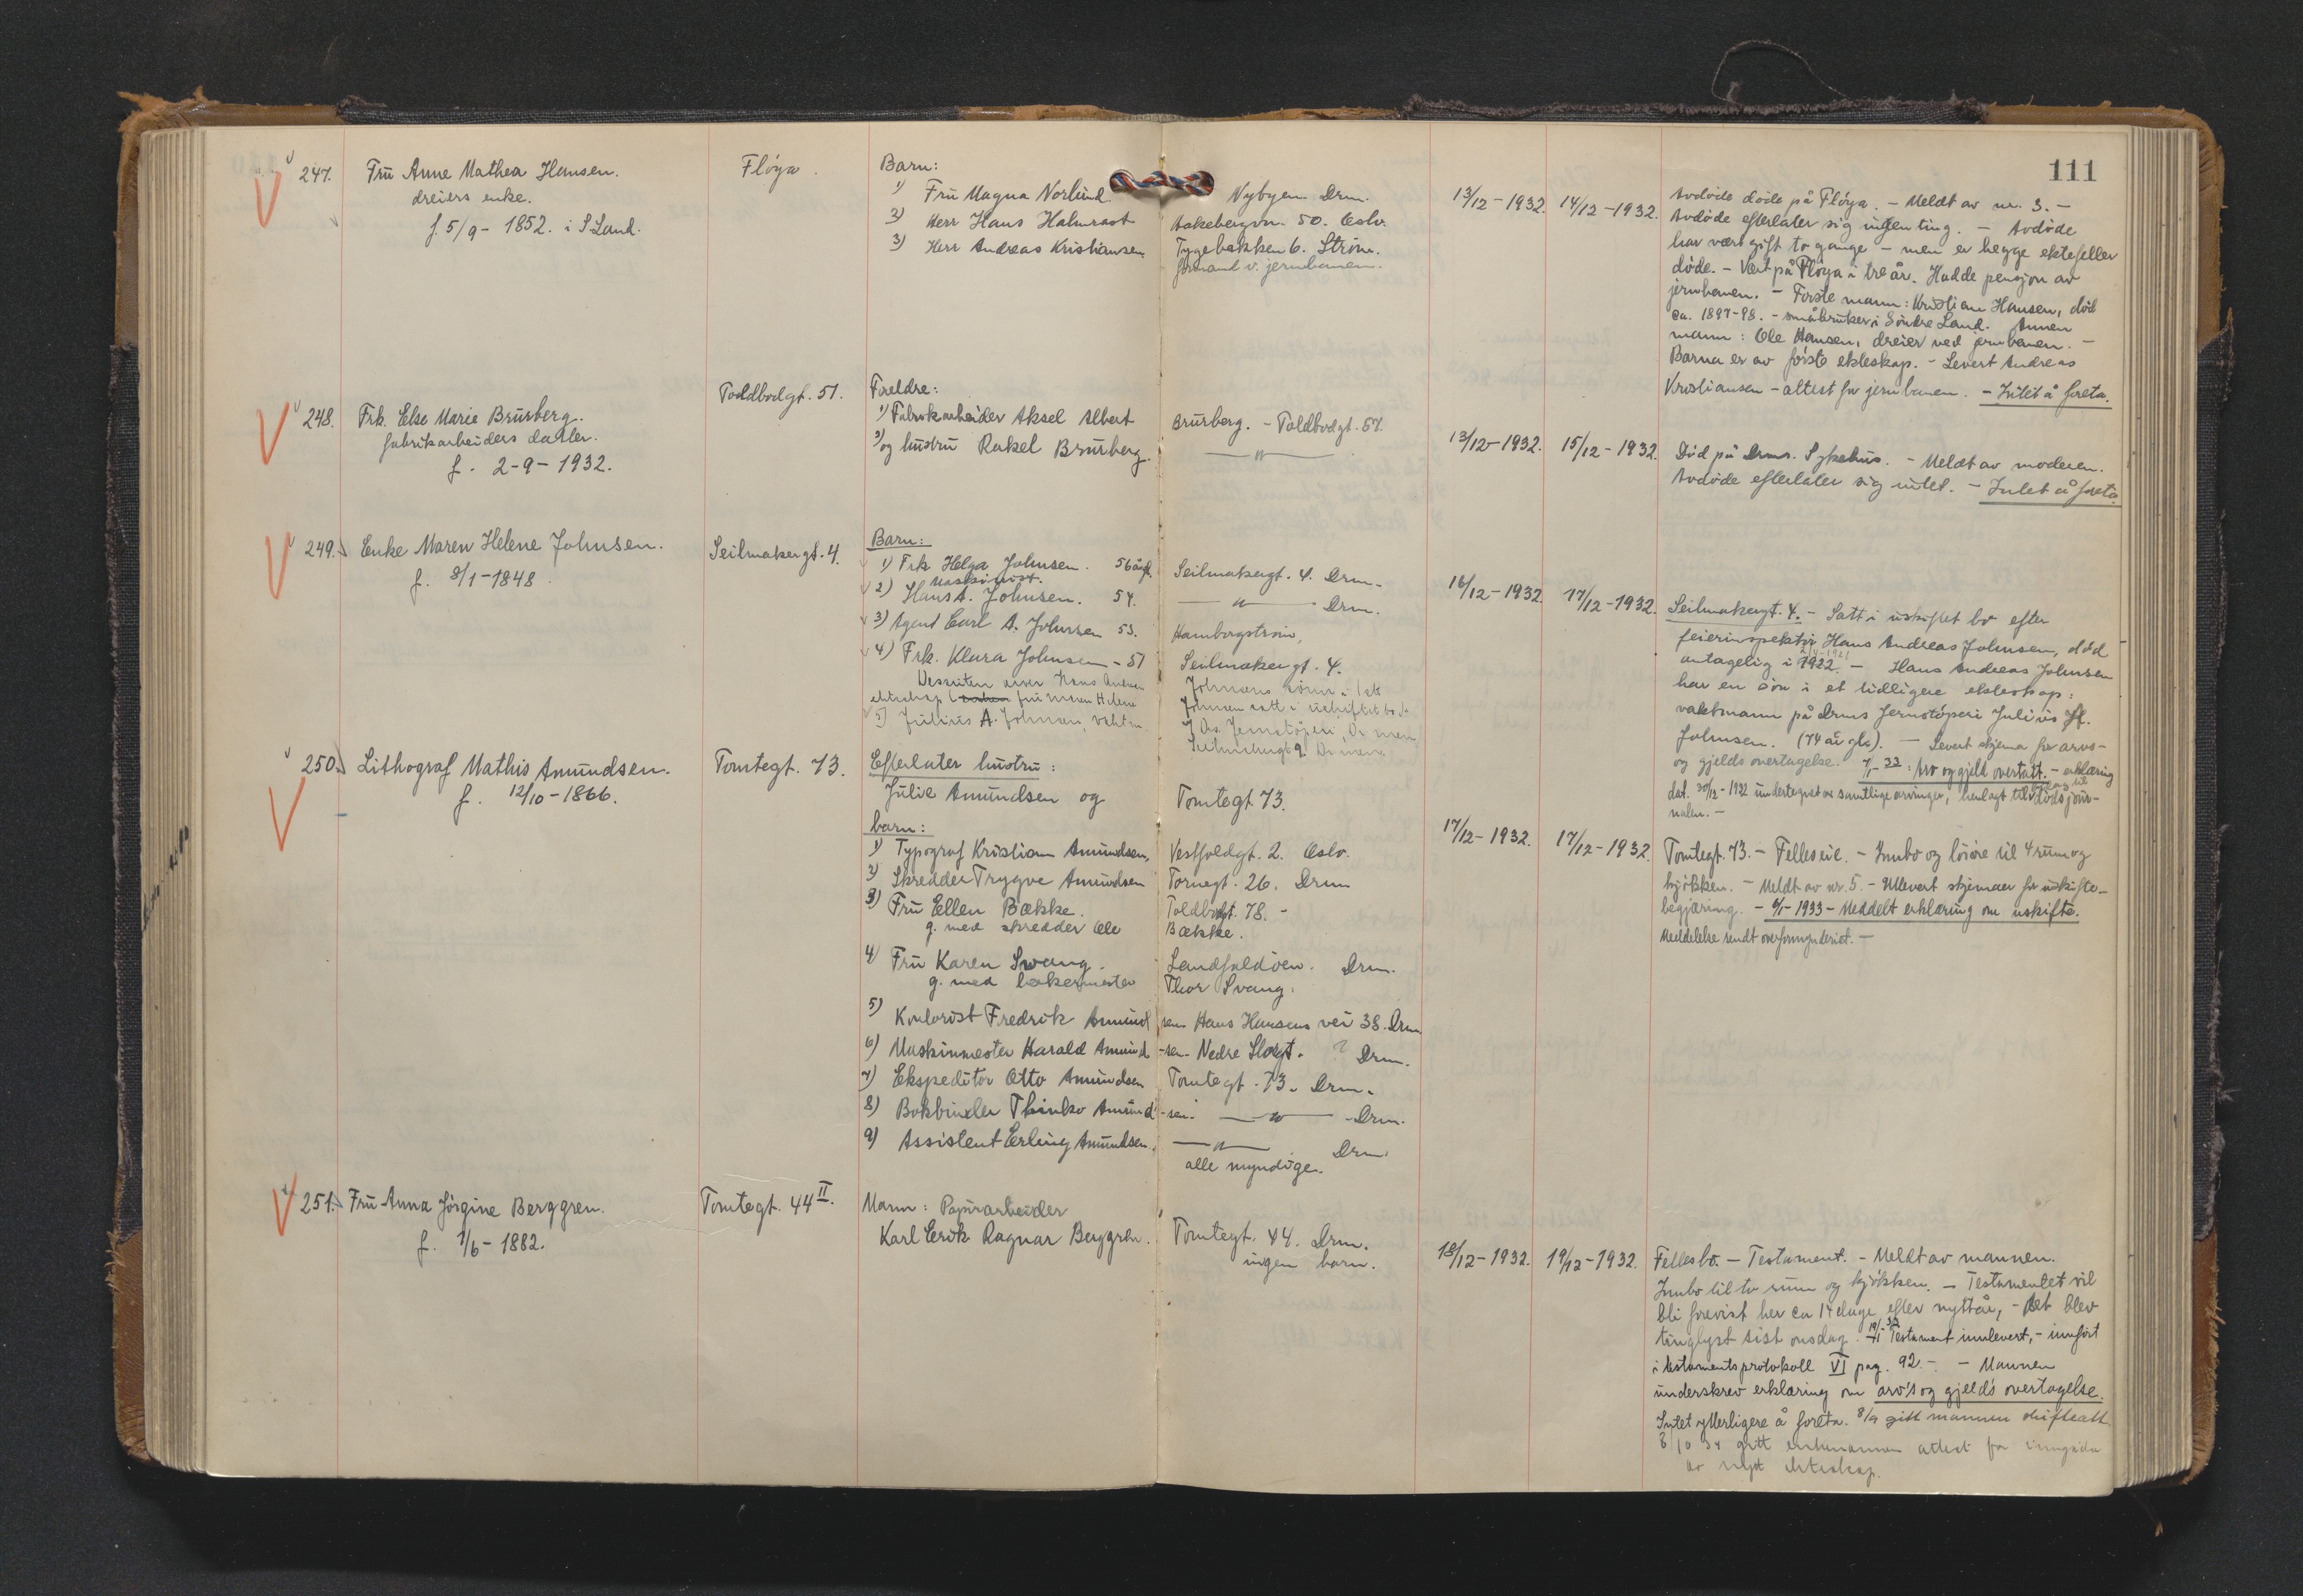 111
247. Fru Anne Mathea Hansen.
dreiers enke.
f. 5/9 - 1852. i S. Land.
Fløya.
Barn:
1) Fru Magna Norlund Nybyen Drm.
2) Herr Hans Halmrast Aakebergvn. 50. Oslo.
3) Herr Andreas Kristiansen, Tygebakken 6. Strøm.
formand v. jernbanen.
13/12 - 1932. 14/12 - 1932.
Avdøde døde på Fløya. - Meldt av nr. 3. -
Avdøde efterlater sig ingen ting. - Avdøde
har vært gift to gange - men er begge ektefeller
døde. - Vært på Fløya i tre år. Hadde pensjon av
jernbanen. - Første mann: Kristian Hansen, død
ca. 1897-98. - småbruker i Søndre Land. Annen
mann: Ole Hansen, dreier ved jernbanen. -
Barna er av første ekteskap. - Levert Andreas
Kristiansen - attest for jernbanen. - Intet å foreta.
248. Frk. Else Marie Brurberg.
fabrikarbeiders datter.
f. 2-9-1932.
Toldbodgt. 51.
Foreldre:
1) Fabrikarbeider Aksel Albert Brurberg. - Toldbodgt. 51.
2) og hustru Rakel Brurberg. — " —
13/12 - 1932. 15/12 - 1932.
Død på Drms. Sykehus. - Meldt av moderen.
Avdøde efterlater sig intet. - Intet å foreta.
249. Enke Maren Helene Johnsen.
f. 8/1 - 1848.
Seilmakergt. 4.
Barn:
1) Frk. Helga Johnsen. 56 år gl. Seilmakergt. 4. Drm.
Maskinist.
2) Hans A. Johnsen. 54. — " — Drm.
3) Agent Carl A. Johnsen 53. Hamborgstrøm,
4) Frk. Klara Johnsen - 51 Seilmakergt. 4.
Dessuten arver Hans Andreas Johnsens sønn i 1ste
ekteskap fru Maren Helene Johnsen satt i uskiftet bo
5) Julius A. Johnsen, vaktm.
16/12 - 1932. 17/12 - 1932.
Seilmakergt. 4. - Satt i uskiftet bo efter
feierinspektør Hans Andreas Johnsen, død
antagelig i 1922. - Hans Andreas Johnsen
har en søn i et tidligere ekteskap:
vaktmann på Drms Jernstøperi Julius
Johnsen. (74 år gl.). - Levert skjema for arvs-
og gjelds overtagelse. : Arv og gjeld overtatt. - erklæring
dat. 30/12 - 1932 undertegnet av samtlige arvinger, henlagt til dødsjour-
nalen. -
250. Lithograf Mathis Amundsen.
f. 12/10 - 1866.
Tomtegt. 73.
Efterlater hustru:
Julie Amundsen og Tomtegt. 73.
barn:
1) Typograf Kristian Amundsen, Vestfoldgt. 2. Oslo.
2) Skredder Trygve Amundsen Tornegt. 26. Drm
3) Fru Ellen Bække. Toldbodgt. 78. -
g. med skredder Ole Bække.
4) Fru Karen Svang. Landfaldøen. Drm.
g. med bakermester Thor Svang.
5) Kontorist Fredrik Amundsen Hans Hansens vei 38. Drm
6) Maskinmester Harald Amund-sen. Nedre Storgt. ? Drm.
7) Ekspeditør Otto Amundsen Tomtegt. 73. Drm.
8) Bokbinder Amund-sen. — " — Drm.
9) Assistent Erling Amundsen. — " — Drm.
alle myndige.
17/12 - 1932. 17/12 - 1932.
Tomtegt. 73. - Felleseie. - Innbo og løsøre til 4 rum og
kjøkken. - Meldt av nr. 5. - Utlevert skjemaer for uskifte-
begjæring. - 6/1 - 1933 - Meddelt erklæring om uskifte.
Meddelelse sendt overformynderiet. -
251. Fru Anna Jørgine Berggren.
f. 1/6 - 1882.
Tomtegt. 44 II.
Mann: Papirarbeider
Karl Erik Ragnar Berggren. Tomtegt. 44. Drm.
ingen barn.
18/12 - 1932. 19/12 - 1932.
Fellesbo. - Testament. - Meldt av mannen.
Innbo til to rum og kjøkken. - Testamentet vil
bli forevist her ca 14 dage efter nyttår, - det blev
tinglyst sist onsdag. Testament innlevert, - innført
i testamentsprotokoll VI pag. 92. - - Mannen
underskrev erklæring om arv's og gjeld's overtagelse.
Intet ytterligere å foreta. 8/9 gitt mannen skifteatt.
8/10 34 gitt enkemannen attest for inngåelse
av nytt ekteskap.